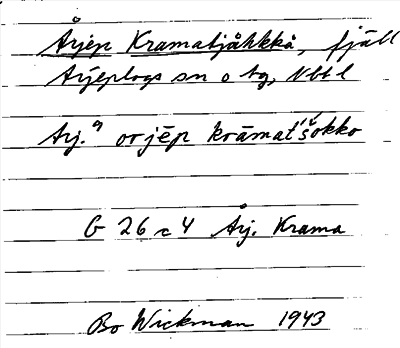 Årjep Kramatjåhkkå, fjäll
Arjeplogs sn o tg, Nbt l
Arj. ⁹ orjēp krāmat'šokko
G 26 c 4 Årj. Krama
Bo Wickman 1943